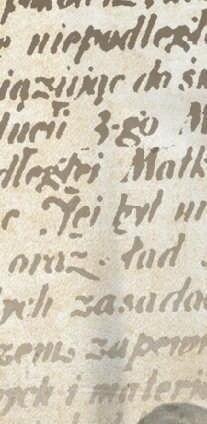 niepodległ
iązując do św
dnień 3-go M
dległej Matk
Jej był
oraz ład
ych zasada
zem zapewn
ych i materia